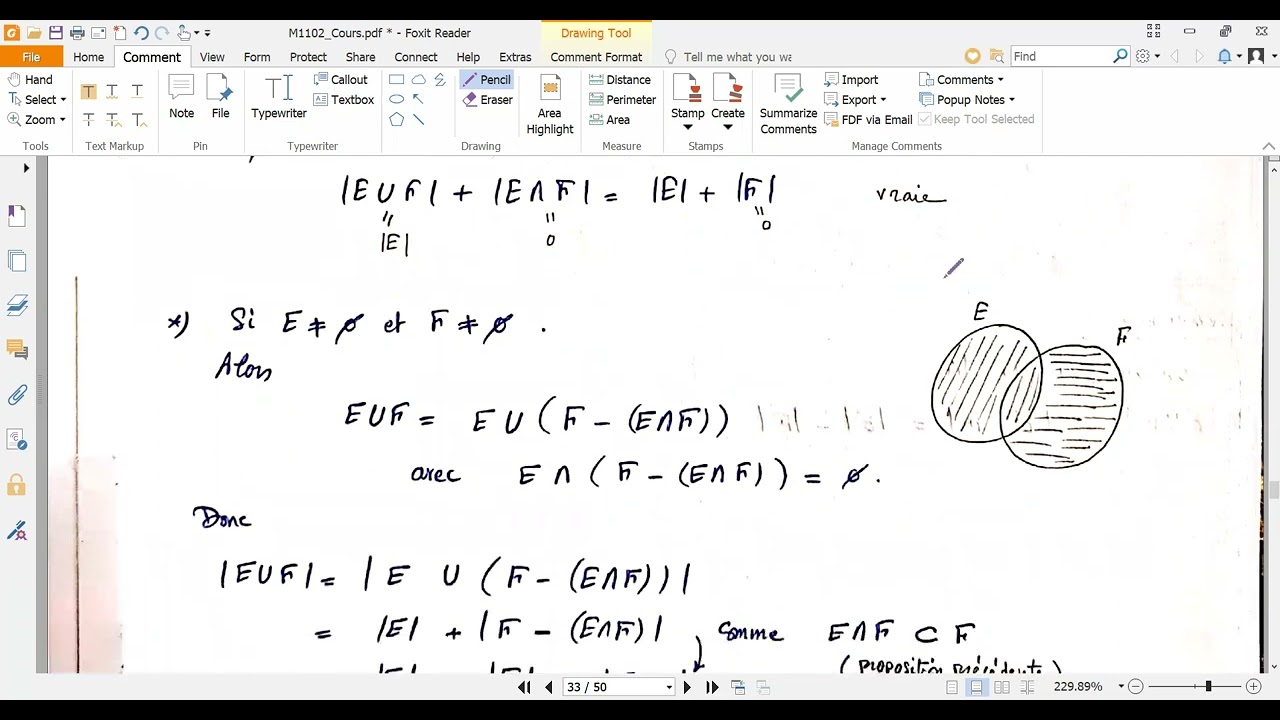 M1102_Cours.pdf * - Foxit Reader
Drawing Tool
File Home Comment View Form Protect Share Connect Help Extras Comment Format Tell me what you wa Find
Hand
Select
Zoom
Tools
Text Markup
Note
File
Pin
Typewriter
Callout
Textbox
Typewriter
Pencil
Eraser
Drawing
Area Highlight
Distance
Perimeter
Area
Measure
Stamp
Create
Stamps
Summarize Comments
Import
Export
FDF via Email
Comments
Popup Notes
Keep Tool Selected
Manage Comments
|E∪F| + |E∩F| = |E| + |F| vraie
|E| 0 0
*) Si E ≠ ∅ et F ≠ ∅ .
Alors
E∪F = E ∪ (F − (E∩F))
avec E ∩ (F − (E∩F)) = ∅.
E
F
Donc
|E∪F| = | E ∪ (F − (E∩F)) |
= |E| + |F − (E∩F)| Comme E∩F ⊂ F
(proposition précédente)
33 / 50
229.89%